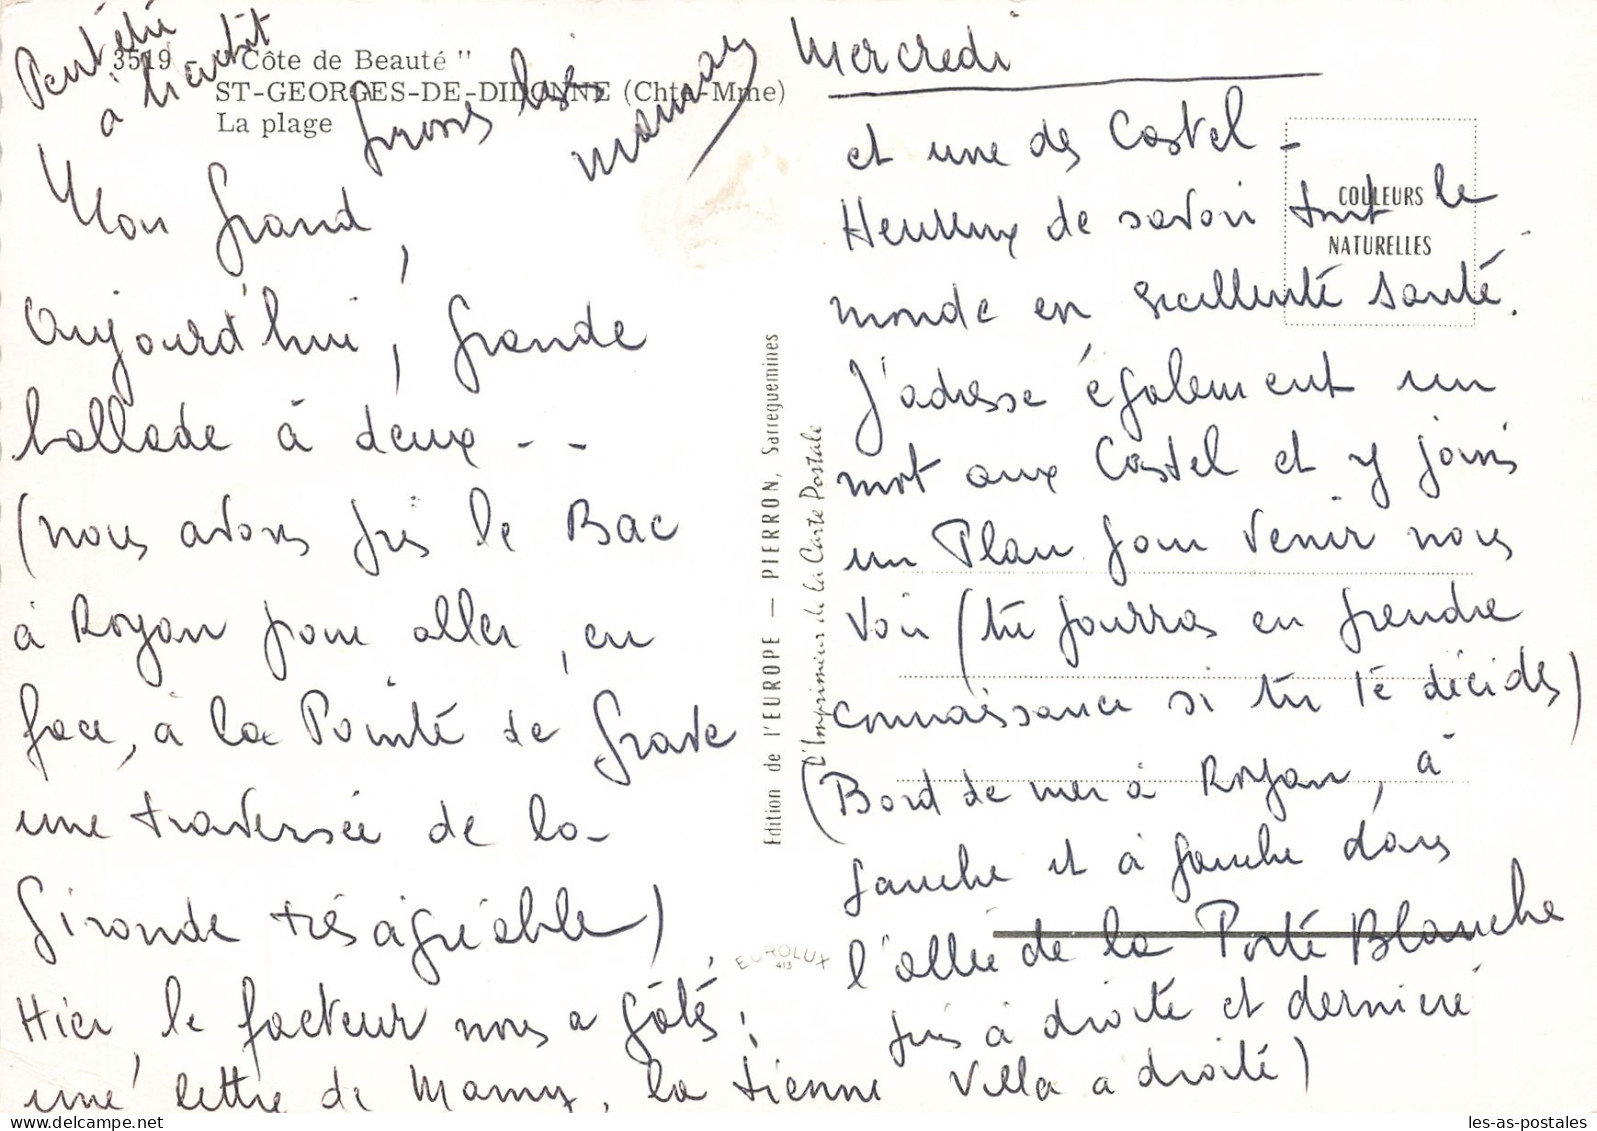 3519 "Côte de Beauté"
ST-GEORGES-DE-DIDONNE (Chte-Mme)
La plage
Peut être
à bientôt
Grosses bises
Maman
Mon Grand,
Aujourd'hui, grande
ballade à deux - -
(nous avons pris le Bac
à Royan pour aller, en
face, à la Pointe de Grave
une traversée de la
Gironde très agréable)
Hier, le facteur nous a gâtés :
une lettre de Mamy, la tienne
Edition de l'EUROPE — PIERRON, Sarreguemines
L'Imprimeur de la Carte Postale
EUROLUX
413
COULEURS
NATURELLES
Mercredi
et une des Castel -
Heureux de savoir tout le
monde en excellente santé.
J'adresse également un
mot aux Castel et y joins
un Plan pour venir nous
voir (tu pourras en prendre
connaissance si tu te décides)
(Bord de mer à Royan, à
gauche et à gauche dans
l'allée de la Porte Blanche
puis à droite et dernière
Villa à droite)
les-as-postales